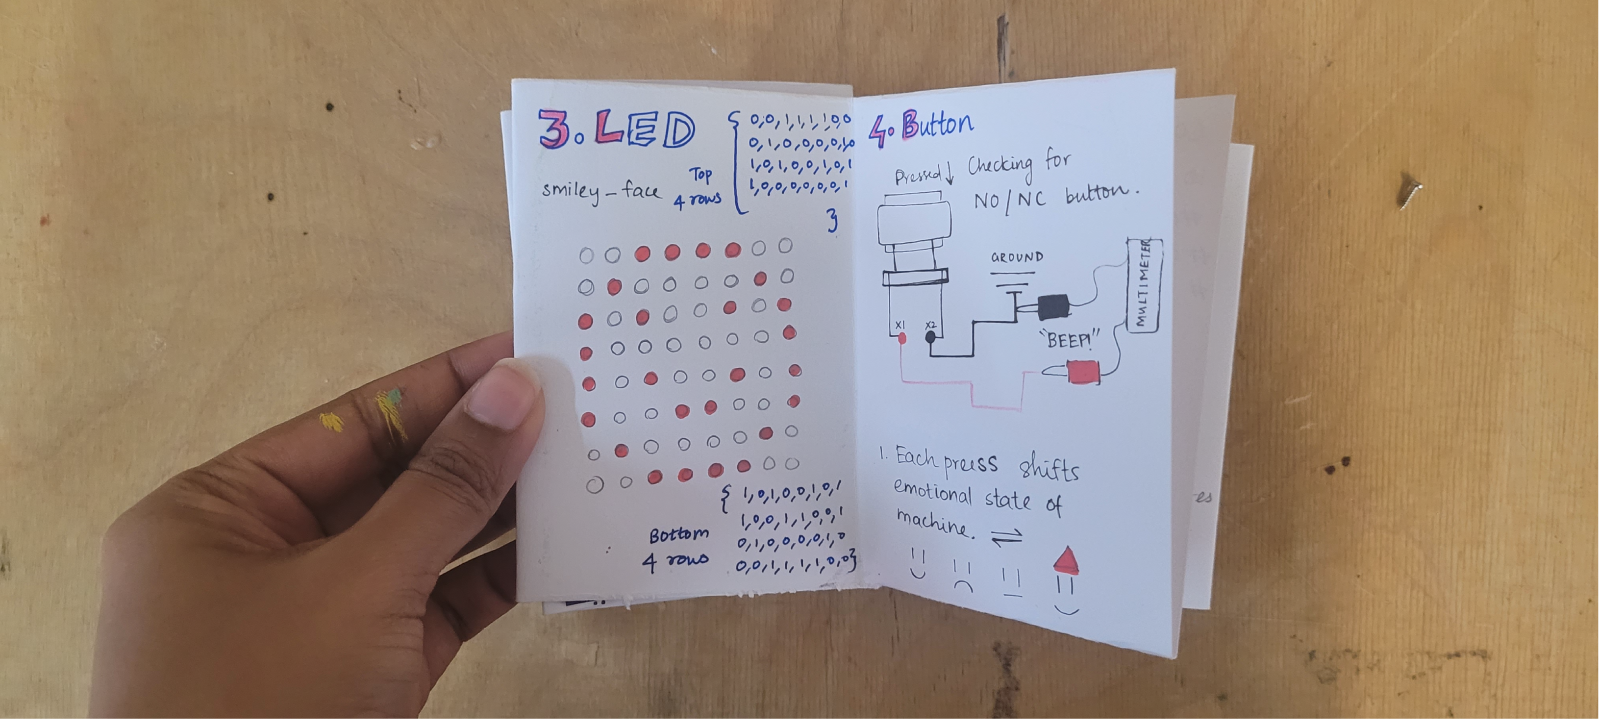 3. LED
smiley_face
Top
4 rows
{ 0,0,1,1,1,1,0,0
0,1,0,0,0,0,1,0
1,0,1,0,0,1,0,1
1,0,0,0,0,0,0,1
}
{ 1,0,1,0,0,1,0,1
1,0,0,1,1,0,0,1
0,1,0,0,0,0,1,0
0,0,1,1,1,1,0,0}
Bottom
4 rows
4. Button
Pressed↓
Checking for
NO/NC button.
GROUND
MULTIMETER
X1 X2
"BEEP!"
1. Each press shifts
emotional state of
machine. ⇌
es